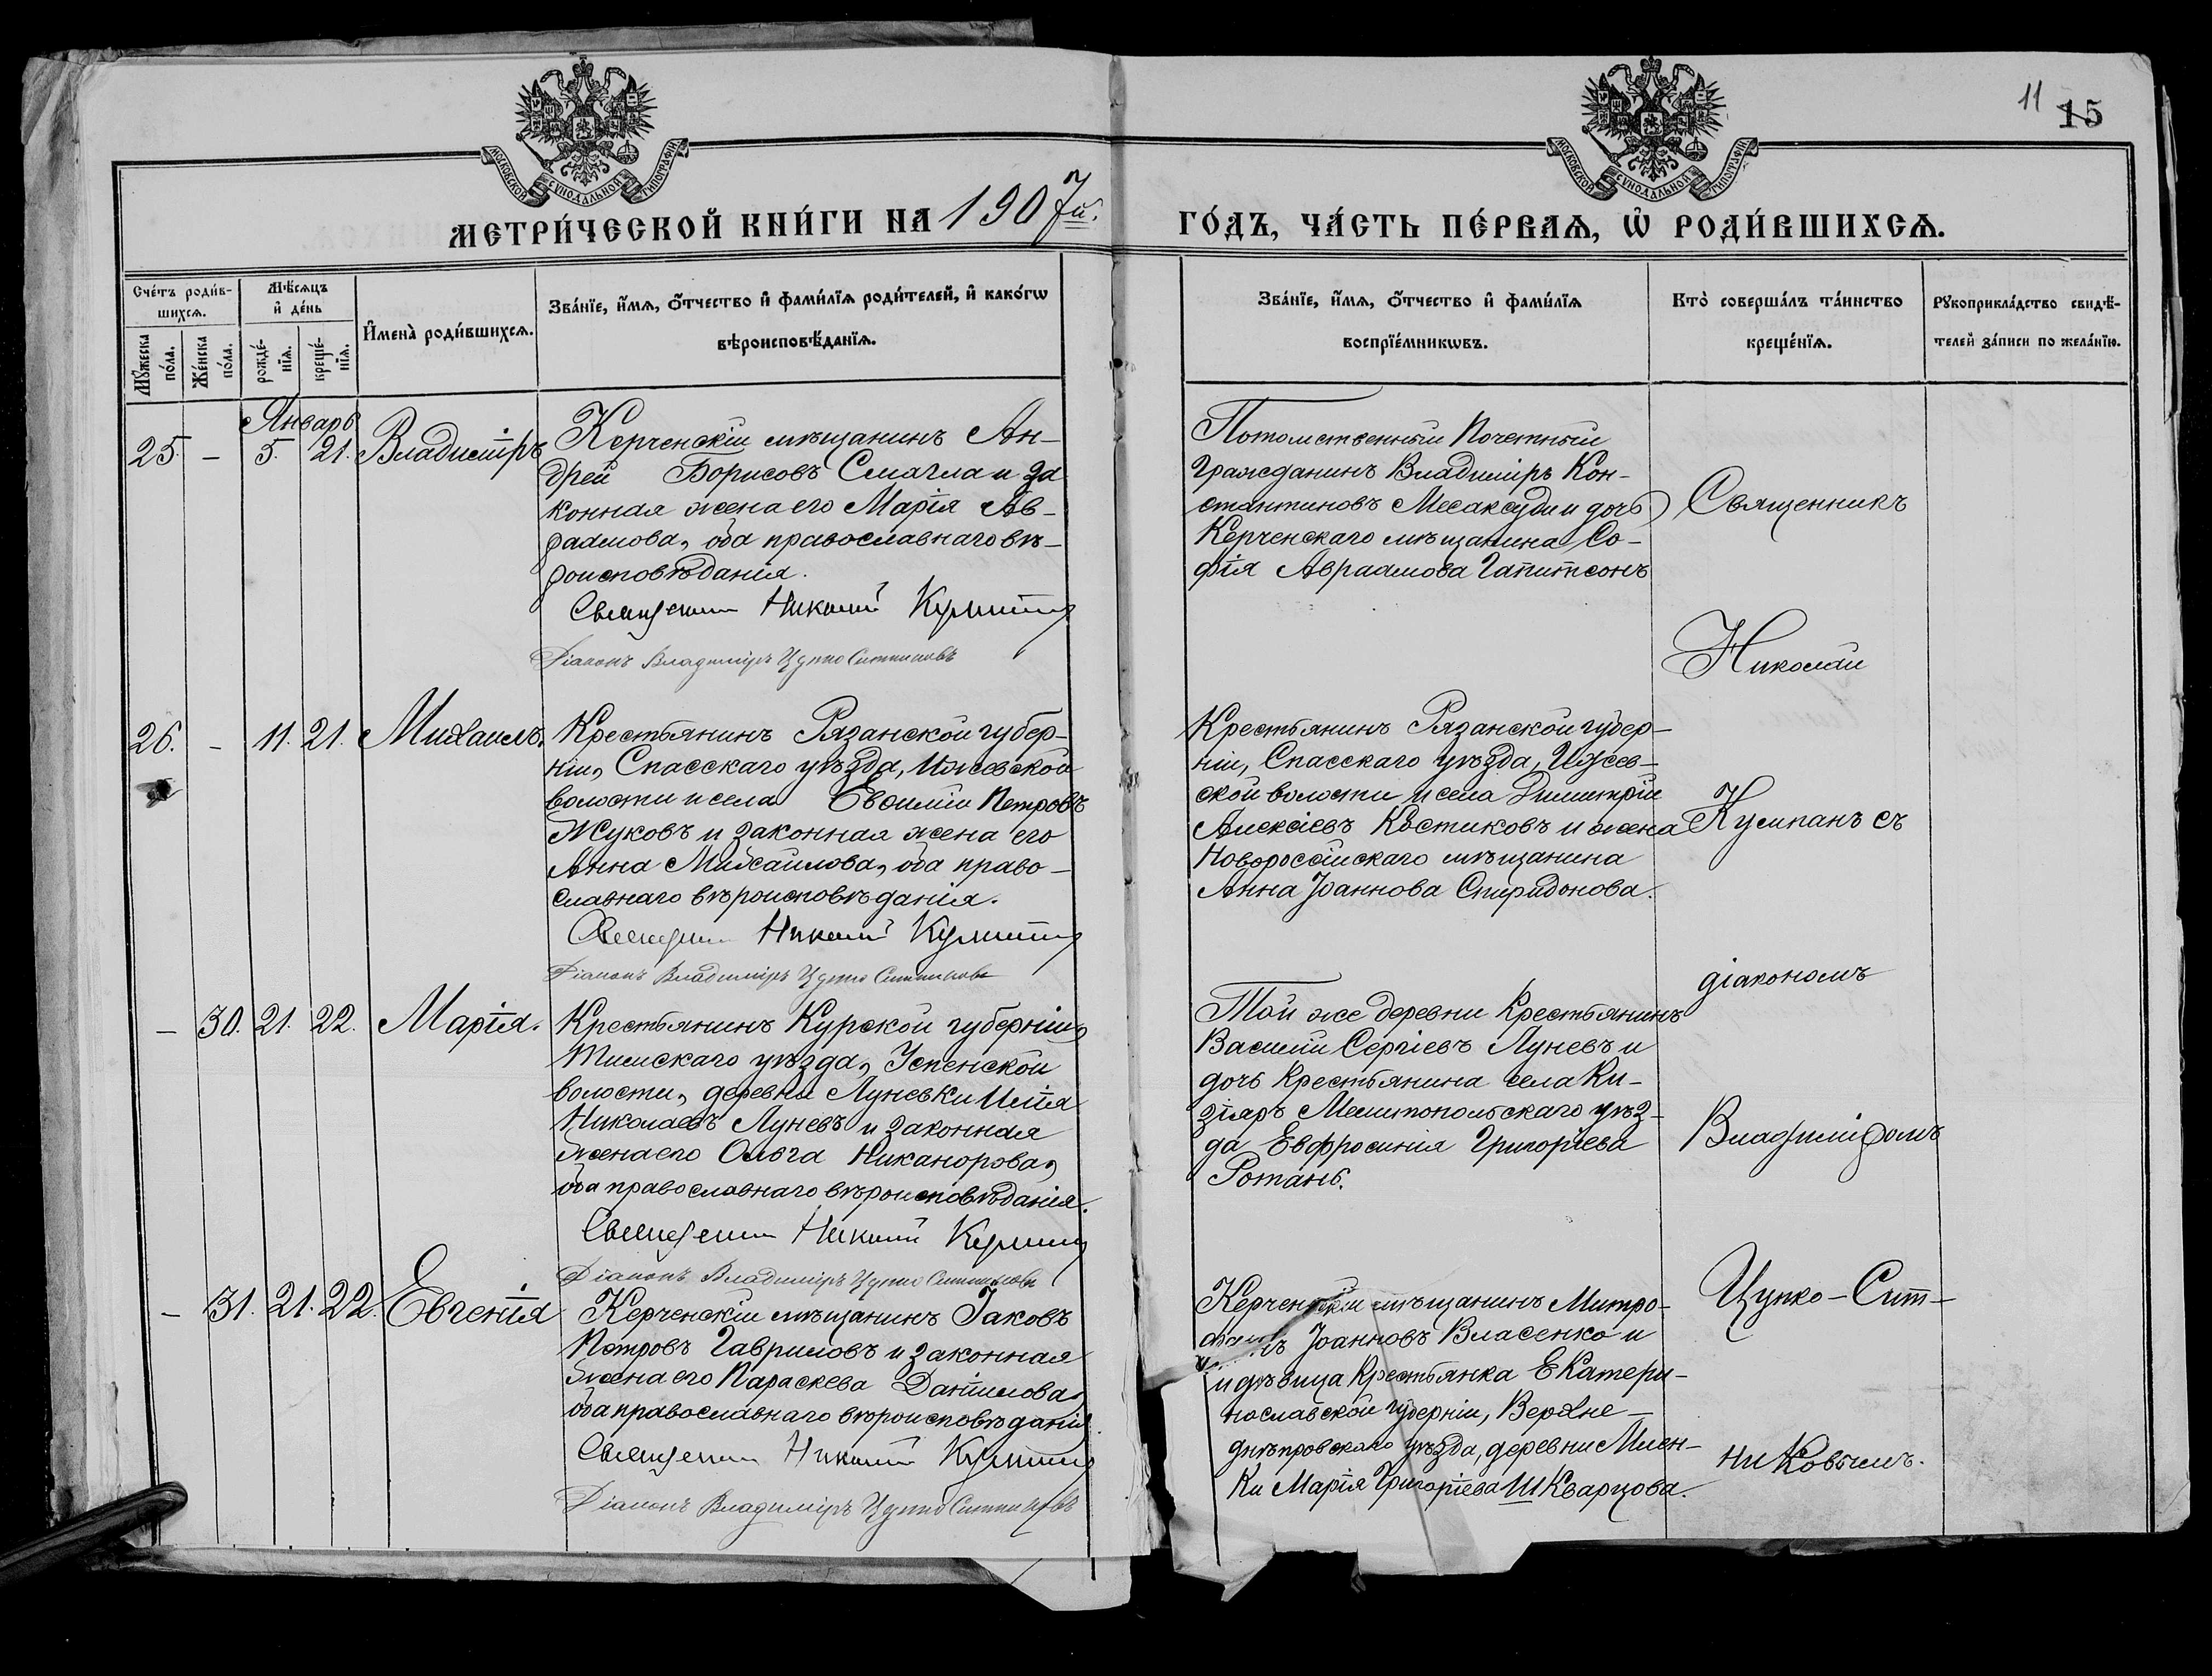 11 15
МОСКОВСКОЙ СѴНОДАЛЬНОЙ ТИПОГРАФІИ
МОСКОВСКОЙ СѴНОДАЛЬНОЙ ТИПОГРАФІИ
МЕТРИ́ЧЕСКОЙ КНИ́ГИ НА 1907й.
ГО́ДЪ, ЧА́СТЬ ПЕ́РВАѦ, Ѡ҆ РОДИ́ВШИХСѦ.
Сче́тъ роди́в-
шихсѧ.
Мꙋ́жеска по́ла.
Же́нска по́ла.
Мѣ́сѧцъ
и҆ де́нь
рожде́-нїѧ.
креще́-нїѧ.
И҆мена̀ роди́вшихсѧ.
Зва́нїе, и҆́мѧ, ѻ҆́тчество и҆ фами́лїѧ роди́телей, и҆ како́гѡ
вѣроисповѣ́данїѧ.
Зва́нїе, и҆́мѧ, ѻ҆́тчество и҆ фами́лїѧ
воспрїе́мникѡвъ.
Кто̀ соверша́лъ та́инство
креще́нїѧ.
Рꙋкоприкла́дство свидѣ́-
телей за́писи по жела́нїю.
Январь
25. – 5. 21. Владиміръ
Керченскій мѣщанинъ Ан-
дрей Борисовъ Смагла и за
конная жена его Марія Ав-
раамова, оба православнаго вѣ-
роисповѣданія.
Священникъ Николай
Діаконъ Владиміръ Цупко Ситниковъ
Потомственный Почетный
Гражданинъ Владиміръ Кон-
стантиновъ Месаксуди и дочь
Керченскаго мѣщанина Со-
фія Авраамова Гапитсонъ
Священникъ
Николай
26. – 11. 21. Михаилъ.
Крестьянинъ Рязанской губер-
ніи, Спасскаго уѣзда, Ижевской
волости и села Евѳимій Петровъ
Жуковъ и законная жена его
Анна Михайлова, оба право-
славнаго вѣроисповѣданія.
Священникъ Николай
Діаконъ Владиміръ Цупко Ситниковъ
Крестьянинъ Рязанской губер-
ніи, Спасскаго уѣзда, Ижев-
ской волости и села Димитрій
Алексіевъ Костиковъ и жена
Новороссійскаго мѣщанина
Анна Іоаннова Спиридонова.
Кумпанъ съ
діакономъ
– 30. 21. 22. Марія.
Крестьянинъ Курской губерніи,
Тимскаго уѣзда, Успенской
волости, деревни Луневки Илія
Николаевъ Луневъ и законная
жена его Ольга Никанорова,
оба православнаго вѣроисповѣданія.
Священникъ Николай
Діаконъ Владиміръ Цупко Ситниковъ
Той же деревни Крестьянинъ
Василій Сергіевъ Луневъ и
дочь Крестьянина села Ки-
зіяръ Мелитопольскаго уѣз-
да Евфросинія Григоріева
Ротань.
Владиміромъ
– 31. 21. 22. Евгенія
Керченскій мѣщанинъ Іаковъ
Петровъ Гавриловъ и законная
жена его Параскева Даніилова,
оба православнаго вѣроисповѣданія.
Священникъ Николай
Діаконъ Владиміръ Цупко Ситниковъ
Керченскій мѣщанинъ Митро-
Іоанновъ Власенко и
и дѣвица Крестьянка Екатери-
нославской губерніи, Верхне-
днѣпровскаго уѣзда, деревни Млен-
ки Марія Григоріева Шкварцова.
Цупко-Сит-
никовымъ.